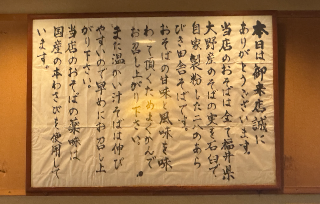 本日は御来店誠に
ありがとうございます。
当店のおそばは全て福井県
大野産のそばの実を石臼で
自家製粉した二八のあら
びき田舎そばです。
おそばの甘味、風味を味
わって頂くためよくかんで
お召し上がり下さい。
また温かい汁そばは伸び
やすいので早めにお召し上
がり下さい。
当店のおそばの薬味は
国産の本わさびを使用して
います。